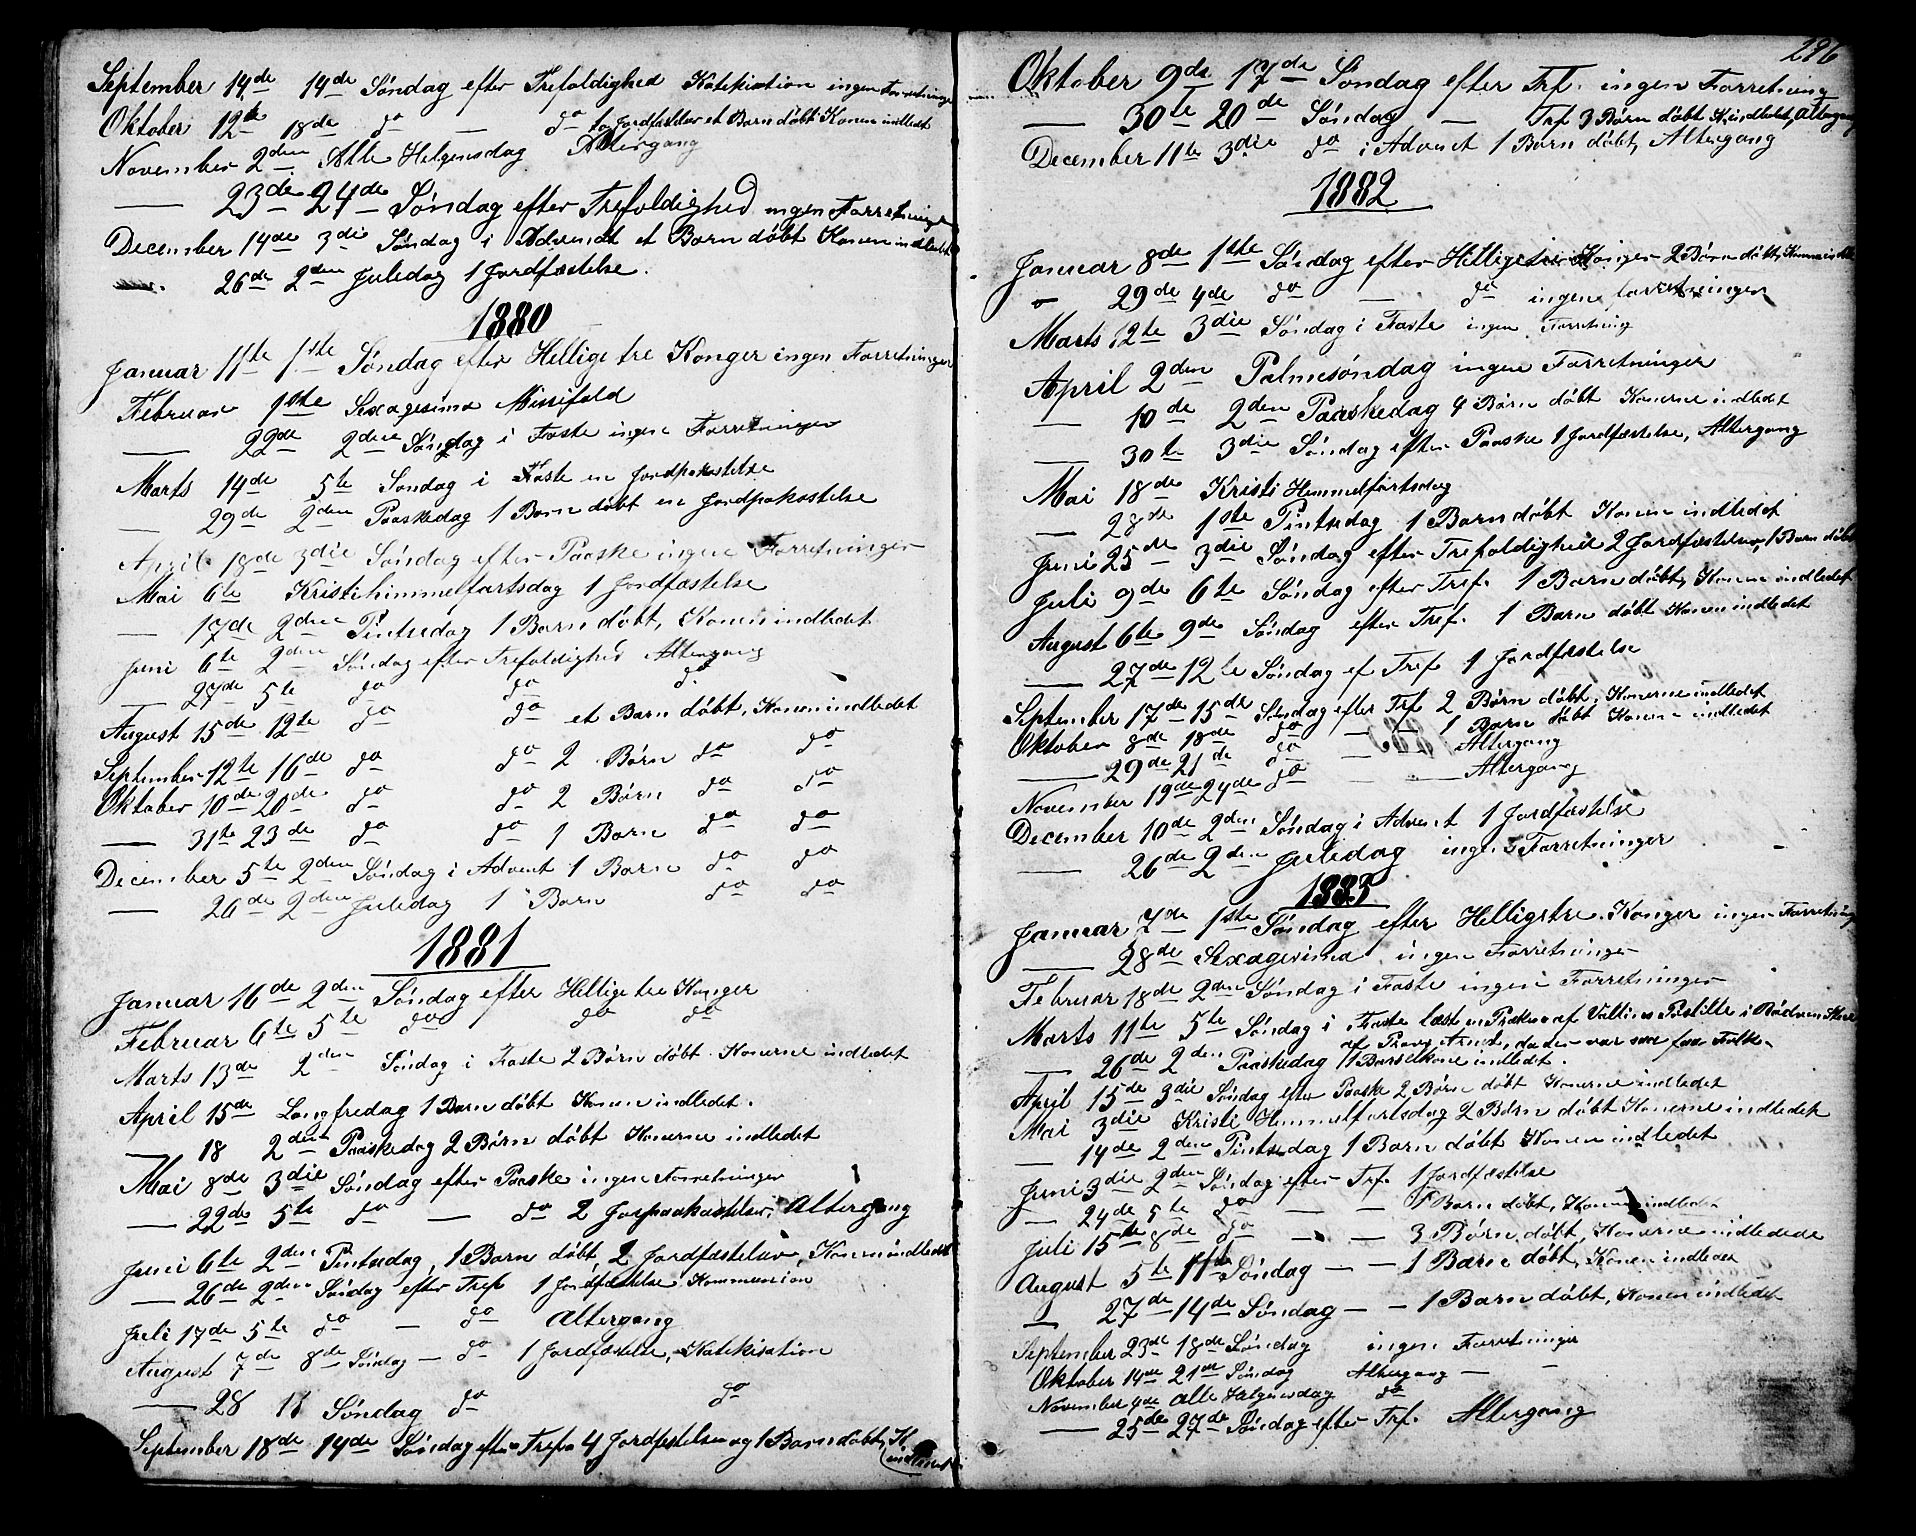 September 14de 14de Søndag efter Trefoldighed Katekisation ingen Forretninger
Oktober 12te 18de do — do Jordfæstelse et Barn døbt Konen indledet
Altergang
November 2den Alle Helgensdag
— 23de 24de Søndag efter Trefoldighed ingen Forretninger
December 14de 3die Søndag i Advendt et Barn døbt Konen indledet
26de 2den Juledag 1 Jordfæstelse.
1880
Januar 11te 1ste Søndag efter Hellige tre Konger ingen Forretninger
Februar 1ste Sexagesima Missifald
— 22de 2den Søndag i Faste ingen Forretninger
Marts 14de 5te Søndag i Faste en Jordpakastelse
— 29de 2den Paaskedag 1 Barn døbt en Jordpakastelse
April 18de 3die Søndag efter Paaske ingen Forretninger
Mai 6te Kristihimmelfartsdag 1 Jordfæstelse
— 17de 2den Pintsedag 1 Barn døbt, Konen indledet
Juni 6te 2den Søndag efter Trefoldighed Altergang
— 27de 5te do do do
August 15de 12te do do et Barn døbt, Konen indledet
September 12te 16de do do 2 Børn do do
Oktober 10de 20de do do 2 Børn do do
— 31te 23de do do 1 Barn do do
December 5te 2den Søndag i Advent 1 Barn do do
— 26de 2den Juledag 1 Barn do do
1881
Januar 16de 2den Søndag efter Hellige tre Konger
Februar 6te 5te do do do
Marts 13de 2den Søndag i Faste 2 Børn døbt. Konerne indledet
April 15de Langfredag 1 Barn døbt Konen indledet.
— 18 2den Paaskedag 2 Børn døbt Konerne indledet
Mai 8de 3die Søndag efter Paaske ingen Forretninger
— 22de 5te do — do 2 Jorpaakastelser, Altergang
Juni 6te 2den Pintsedag, 1 Barn døbt, 2 Jordfæstelser, Konen indledet
— 26de 2den Søndag efter Tref 1 Jordfæstelse, Kommunion
Juli 17de 5te do — do Altergang
August 7de 8de Søndag — do 1 Jordfæstelse, Katekisation
— 28 11 Søndag do do
September 18de 14de Søndag efter Tref 4 Jordfæstelser og 1 Barn døbt, K.
indledet
296
Oktober 9de 17de Søndag efter Tref. ingen Forretning
— 30te 20de Søndag — Tref 3 Børn døbt K. indledet, Altergang
December 11te 3die do i Advent 1 Barn døbt, Altergang
1882
Januar 8de 1ste Søndag efter Helligetre Konger 2 Børn døbt, Konerne indle
" 29de 4de do — do ingen forretninger
Marts 12te 3die Søndag i Faste ingen Forretning
April 2den Palmesøndag ingen Forretninger
— 10de 2den Paaskedag 4 Børn døbt Konerne indledet
— 30te 3die Søndag efter Paaske 1 Jordfæstelse, Altergang
Mai 18de Kristi Himmelfartsdag
— 28de 1ste Pintsedag 1 Barn døbt Konen indledet
Juni 25de 3die Søndag efter Trefoldighed 2 Jordfæstelser, 1 Barn døbt
Juli 9de 6te Søndag efter Tref. 1 Barn døbt, Konen indledet
August 6te 9de Søndag efter Tref. 1 Barn døbt Konen indledet
— 27de 12te Søndag ef Tref 1 Jordfæstelse
September 17de 15de Søndag efter Trf 2 Børn døbt, Konerne indledet
Oktober 8de 18de do — 1 Barn døbt Konen indledet
— 29de 21de do — Altergang
November 19de 24de do — Altergang
December 10de 2den Søndag i Advent 1 Jordfæstelse
26de 2den Juledag ingen Forretninger
1883
Januar 7de 1ste Søndag efter Helligetre Konger ingen Forretning
— 28de Sexagesima ingen Forretninger
Februar 18de 2den Søndag i Faste ingen Forretninger
Marts 11te 5te Søndag i Faste læst en Præken af Vallins Postille i
af Provst, da der var saa faa Folk.
— 26de 2den Paaskedag 1 Barselkone indledet.
April 15de 3die Søndag efter Paaske 2 Børn døbt Konerne indledet
Mai 3die Kristi Himmelfartsdag 2 Børn døbt Konerne indledet
— 14de 2den Pintsedag 1 Barn døbt Konen indledet
Juni 3die 2den Søndag efter Trf. 1 Jordfæstelse
— 24de 5te do — — 1 Barn døbt, Konen indledet
Juli 15te 8de do — — 3 Børn døbt, Konerne indledede
August 5te 11te Søndag — — 1 Barn døbt, Konen indledet
— 27de 14de Søndag — — 1 Barn døbt, Konen indledet
September 23de 18de Søndag ingen Forretninger
Oktober 14de 21de Søndag Altergang —
November 4de Alle Helgensdag do
— 25de 27de Søndag efter Trf. Altergang